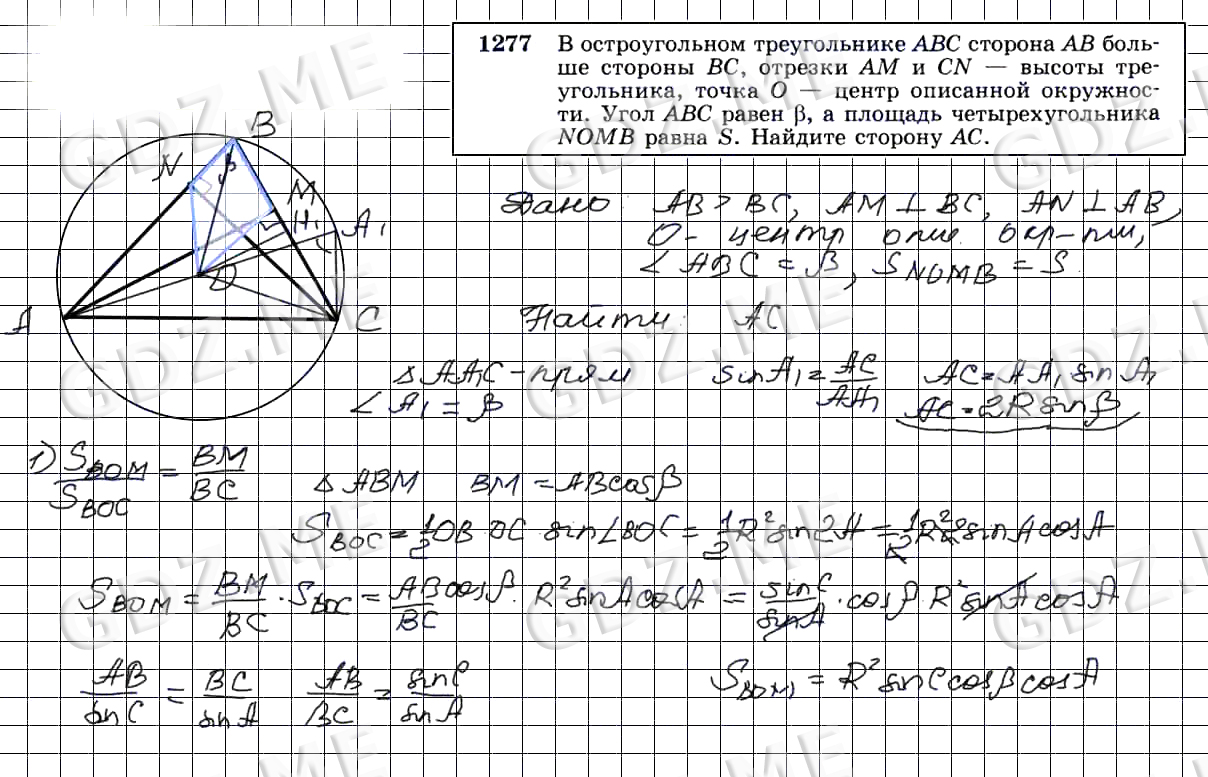 1277 В остроугольном треугольнике ABC сторона AB боль-
ше стороны BC, отрезки AM и CN — высоты тре-
угольника, точка O — центр описанной окружнос-
ти. Угол ABC равен β, а площадь четырехугольника
NOMB равна S. Найдите сторону AC.
B
N
β
M
H₁
A₁
O
A
C
Дано: AB > BC, AM ⊥ BC, AN ⊥ AB,
O - центр опис. окр-ти,
∠ABC = β, S_NOMB = S
Найти: AC
△AA₁C - прям sin A₁ = AC/AA₁ AC = AA₁ sin A₁
∠A₁ = β AC = 2R sin β
1) S_BOM/S_BOC = BM/BC △ABM BM = AB cos β
S_BOC = 1/2 OB·OC sin∠BOC = 1/2 R² sin 2A = 1/2 R² 2 sin A cos A
S_BOM = BM/BC · S_BOC = AB cos β/BC · R² sin A cos A = sin C/sin A · cos β R² sin A cos A
AB/sin C = BC/sin A AB/BC = sin C/sin A S_BOM = R² sin C cos β cos A
GDZ.ME
GDZ.ME
GDZ.ME
GDZ.ME
GDZ.ME
GDZ.ME
GDZ.ME
GDZ.ME
GDZ.ME